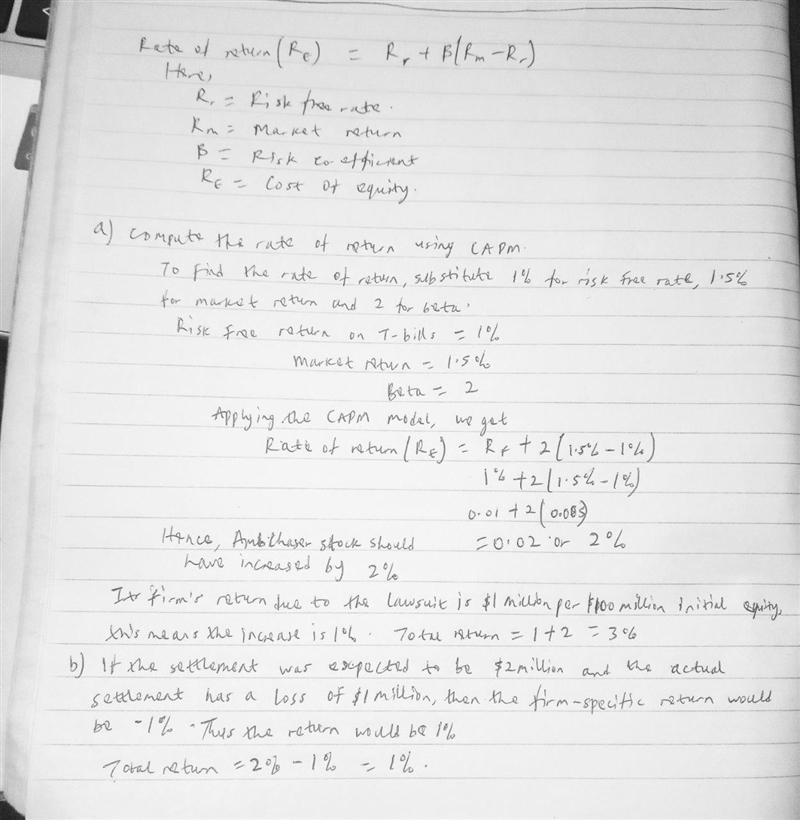 Rate of return (R_E) = R_r + B(R_m - R_r)
Here,
R_r = Risk free rate.
R_m = Market return
B = Risk co efficient
R_E = Cost of equity.
a) Compute the rate of return using CAPM.
To find the rate of return, substitute 1% for risk free rate, 1.5%
for market return and 2 for beta.
Risk free return on T-bills = 1%
Market return = 1.5%
Beta = 2
Applying the CAPM model, we get
Rate of return (R_E) = R_F + 2(1.5% - 1%)
1% + 2(1.5% - 1%)
0.01 + 2(0.005)
Hence, Ambchaser stock should = 0.02 or 2%
have increased by 2%
Its firm's return due to the lawsuit is $1 million per $100 million initial equity,
this means the increase is 1%. Total return = 1 + 2 = 3%
b) If the settlement was expected to be $2 million and the actual
settlement has a loss of $1 million, then the firm-specific return would
be -1%. Thus the return would be 1%
Total return = 2% - 1% = 1%.